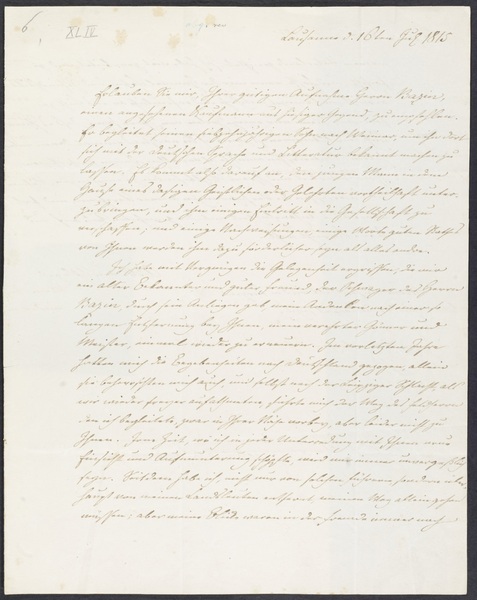 6
XLIV
Lausanne d. 16ten 1815
Erlauben Sie mir, Ihrer gütigen Aufnahme Herrn Bazin,
einen angesehenen Kaufmann aus hiesiger Gegend, zu empfehlen.
Er begleitet seinen jährigen Sohn nach Weimar, um ihn dort
sich mit der deutschen Sprache und Litteratur bekannt machen zu
lassen. Es kommt also darauf an, den jungen Mann in dem
Hause eines dasigen Geistlichen oder Gelehrten vortheilhaft unter-
zubringen, und ihm einigen Eintritt in die Gesellschaft zu
verschaffen; und einige Nachweisungen, einige Worte guten Rathes
von Ihnen werden ihm dazu förderlicher seyn als alles andre.
Ich habe mit Vergnügen die Gelegenheit ergriffen, die mir
ein alter Bekannter und guter Freund, der Schwager des Herrn
Bazin, durch sein Anliegen gab, mein Andenken nach einer so
langen Entfernung bey Ihnen, mein verehrter Gönner und
Meister, einmal wieder zu erneuern. Im vorletzten Jahre
hatten mich die Begebenheiten nach Deutschland gezogen, allein
sie beherrschten mich auch, und selbst nach der Leipziger Schlacht, als
wir wieder freyer aufathmeten, führte mich der Weg des
den ich begleitete, zwar in Ihrer Nähe vorbey, aber leider nicht zu
Ihnen. Jene Zeit, wo ich in jeder Unterredung mit Ihnen neue
Einsicht und Aufmunterung schöpfte, wird mir immer unvergeßlich
seyn. Seitdem habe ich, nicht nur von solchen, sondern über-
haupt von meinen Landsleuten entfernt meinen Weg allein gehen
müssen; aber meine Blicke waren in der Fremde immer nach